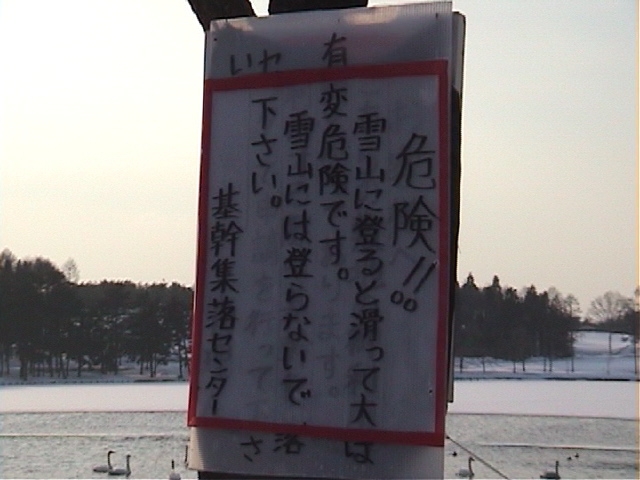 危険!!
雪山に登ると滑って大
変危険です。
雪山には登らないで
下さい。
基幹集落センター